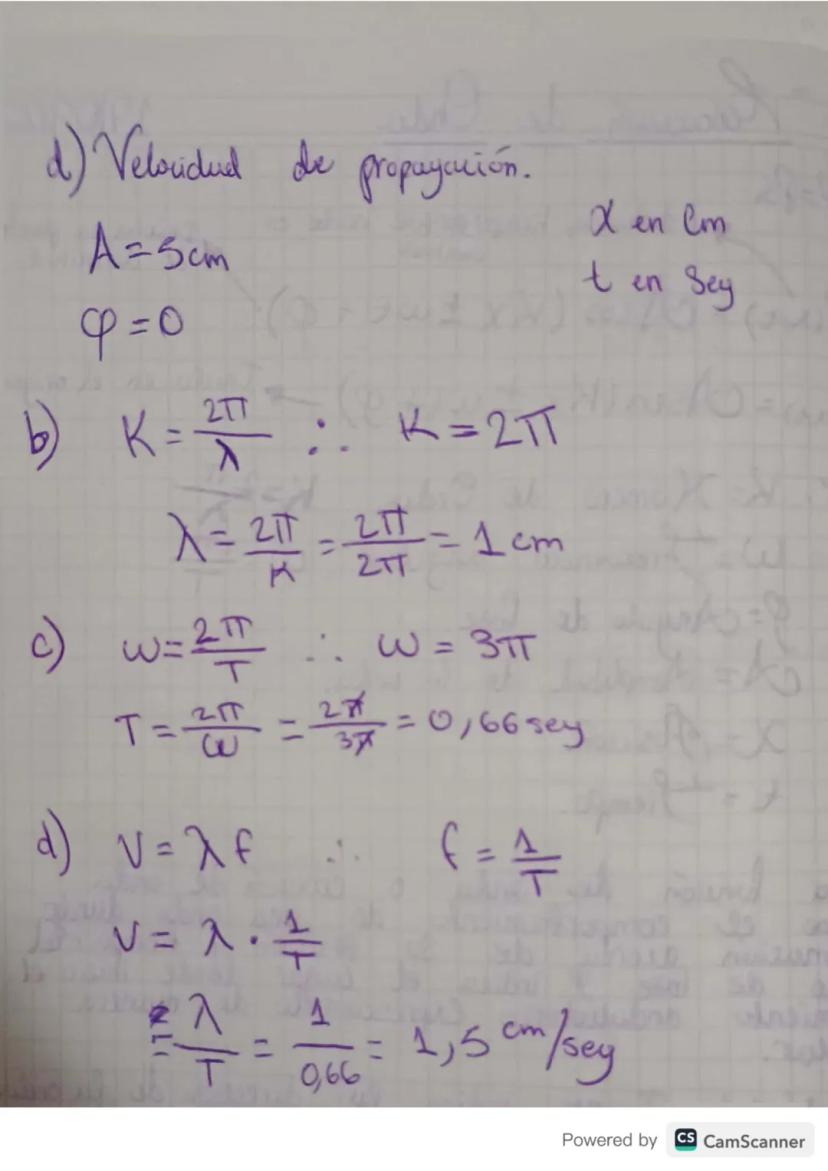 d) Velocidad de propagación.
A = 5cm
x en cm
φ = 0
t en Seg
b) K = 2π/λ ∴ K = 2π
λ = 2π/K = 2π/2π = 1 cm
c) ω = 2π/T ∴ ω = 3π
T = 2π/ω = 2π/3π = 0,66 seg
d) V = λ f ∴ f = 1/T
V = λ · 1/T
= λ/T = 1/0,66 = 1,5 cm/seg
Powered by CS CamScanner